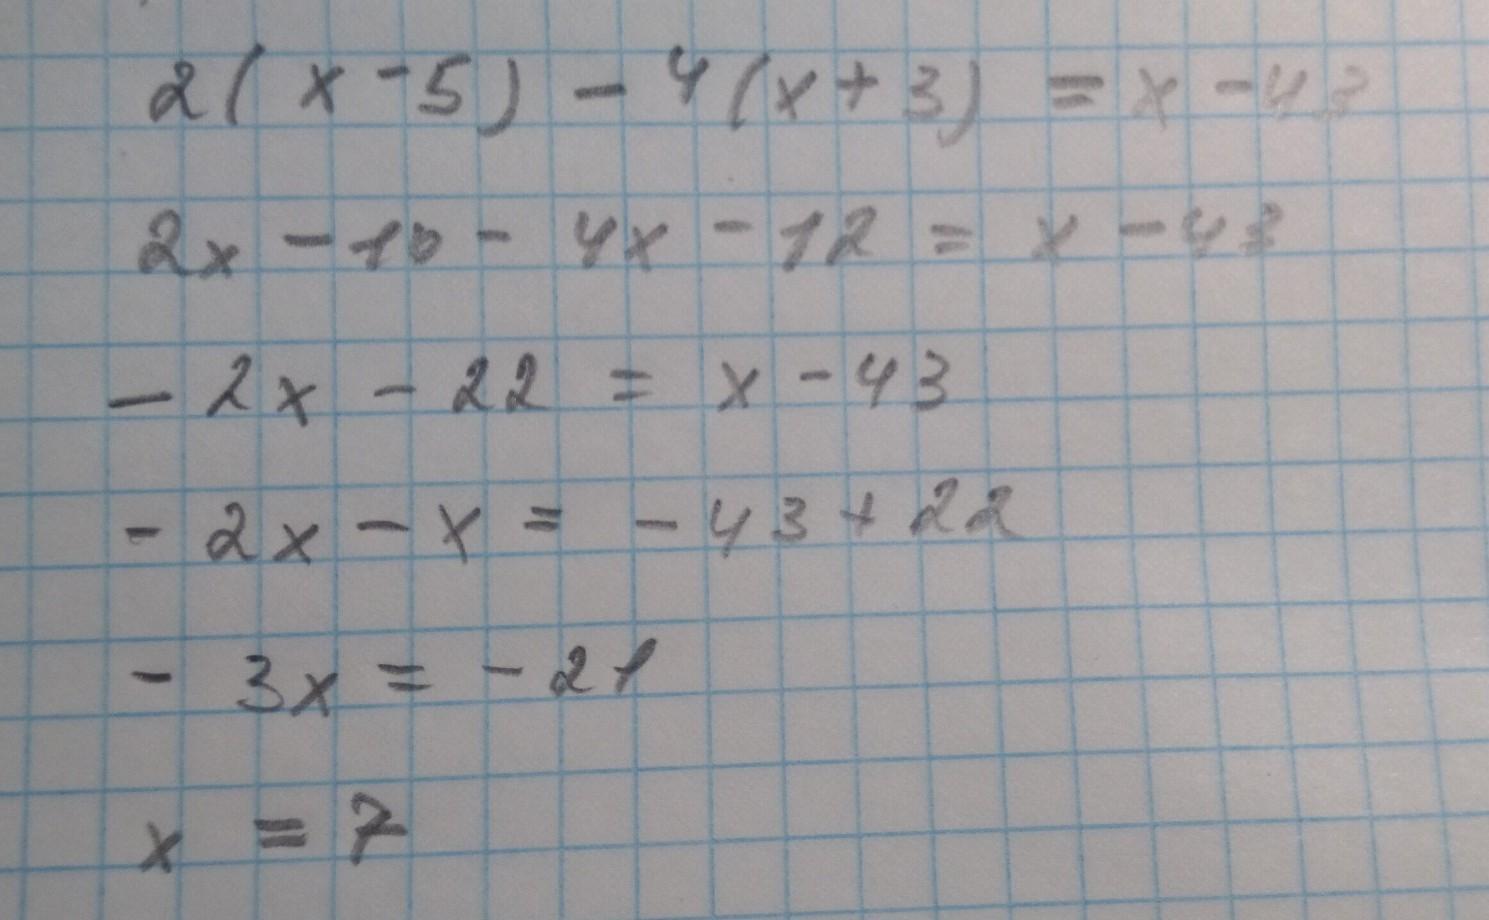 2(x-5)-4(x+3)=x-43
2x-10-4x-12=x-43
-2x-22=x-43
-2x-x=-43+22
-3x=-21
x=7